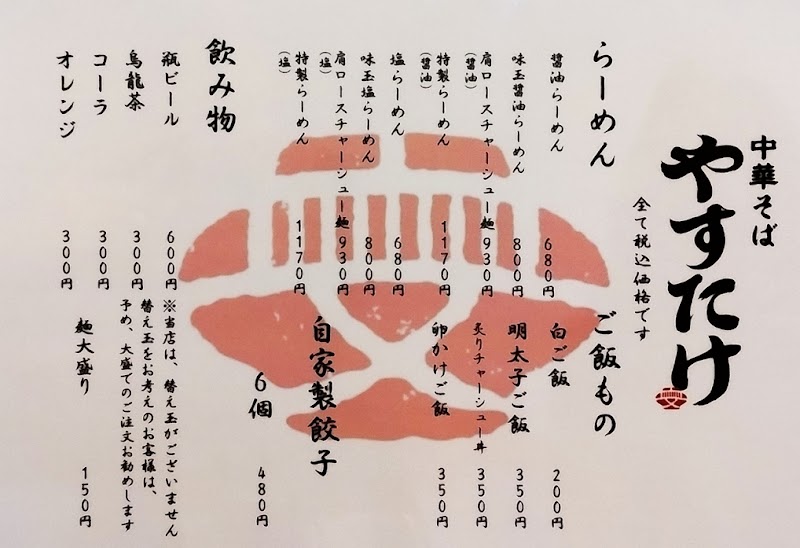 中華そば
やすたけ
全て税込価格です
らーめん
醤油らーめん 680円
味玉醤油らーめん 800円
肩ロースチャーシュー麺(醤油) 930円
特製らーめん(醤油) 1170円
塩らーめん 680円
味玉塩らーめん 800円
肩ロースチャーシュー麺(塩) 930円
特製らーめん(塩) 1170円
飲み物
瓶ビール 600円
烏龍茶 300円
コーラ 300円
オレンジ 300円
ご飯もの
白ご飯 200円
明太子ご飯 350円
炙りチャーシュー丼 350円
卵かけご飯 350円
自家製餃子
6個 480円
※当店は、替え玉がございません
替え玉をお考えのお客様は、
予め、大盛でのご注文お勧めします
麺大盛り 150円